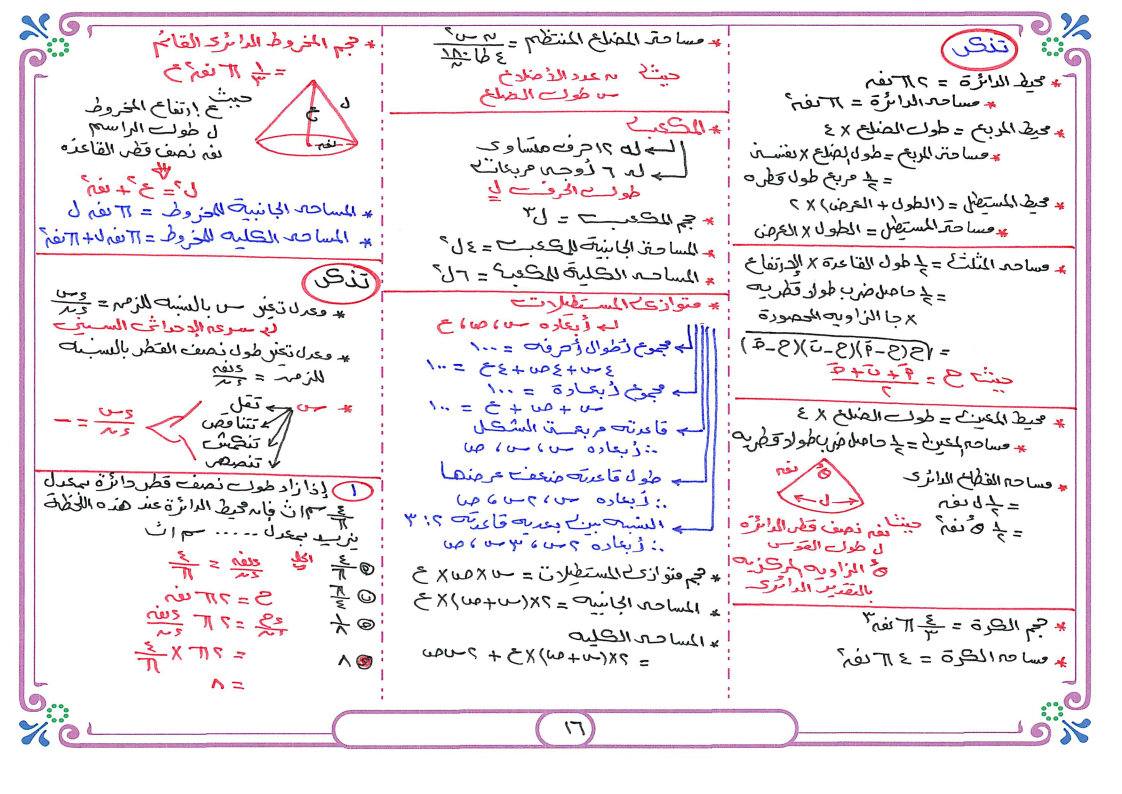 تذكر
* محيط الدائرة = ٢ π نق
* مساحة الدائرة = π نق²
* محيط المربع = طول الضلع × ٤
* مساحة المربع = طول الضلع × نفسه
= ١/٢ مربع طول قطره
* محيط المستطيل = (الطول + العرض) × ٢
* مساحة المستطيل = الطول × العرض
* مساحة المثلث = ١/٢ طول القاعدة × الارتفاع
= ١/٢ حاصل ضرب طولا ضلعيه
× جا الزاوية المحصورة
= √ح(ح-أَ)(ح-بَ)(ح-جَ)
حيث ح = (أَ + بَ + جَ)/٢
* محيط المعين = طول الضلع × ٤
* مساحة المعين = ١/٢ حاصل ضرب طولا قطريه
* مساحة القطاع الدائرى
= ١/٢ ل نق
= ١/٢ هـ نق²
نق
هـ
ل
حيث نق نصف قطر الدائرة
ل طول القوس
هـ الزاوية المركزية
بالتقدير الدائرى
* حجم الكرة = ٤/٣ π نق³
* مساحة الكرة = ٤ π نق²
* مساحة المضلع المنتظم = ن س² / ٤ ظا ١٨٠/ن
حيث ن عدد الأضلاع
س طول الضلع
* المكعب
له ١٢ حرف متساوى
له ٦ أوجه مربعات
طول الحرف ل
* حجم المكعب = ل³
* المساحة الجانبية للمكعب = ٤ ل²
* المساحة الكلية للمكعب = ٦ ل²
* متوازى المستطيلات
أبعاده س ، ص ، ع
مجموع أطوال أحرفه = ١٠٠
٤س + ٤ص + ٤ع = ١٠٠
مجموع أبعاده = ١٠٠
س + ص + ع = ١٠٠
قاعدته مربعة الشكل
∴ أبعاده س ، س ، ص
طول قاعدته ضعف عرضها
∴ أبعاده س ، ٢س ، ص
النسبة بين بعديه قاعدته ٢ : ٣
∴ أبعاده ٢س ، ٣س ، ص
* حجم متوازى المستطيلات = س × ص × ع
* المساحة الجانبية = ٢ × (س + ص) × ع
* المساحة الكلية
= ٢ × (س + ص) × ع + ٢ س ص
* حجم المخروط الدائرى القائم
= ١/٣ π نق² ع
حيث ع ارتفاع المخروط
ل طول الراسم
نق نصف قطر القاعدة
ع
ل
نق
ل² = ع² + نق²
* المساحة الجانبية للمخروط = π نق ل
* المساحة الكلية للمخروط = π نق ل + π نق²
تذكر
* معدل تغير س بالنسبة للزمن = ءس/ءن
سرعة الإحداثى السينى
* معدل تغير طول نصف القطر بالنسبة
للزمن = ءنق/ءن
* س
تقل
تتناقص
تنكمش
تنصهر
ءس/ءن = -
١ إذا زاد طول نصف قطر دائرة بمعدل
٤/π سم/ث فإن محيط الدائرة عند هذه اللحظة
يزيد بمعدل ..... سم/ث
أ ٤/π
ب π/٤
ج ١/٨
د ٨
الحل
ءنق/ءن = ٤/π
ح = ٢ π نق
ءح/ءن = ٢ π ءنق/ءن
= ٢ π × ٤/π
= ٨
١٦